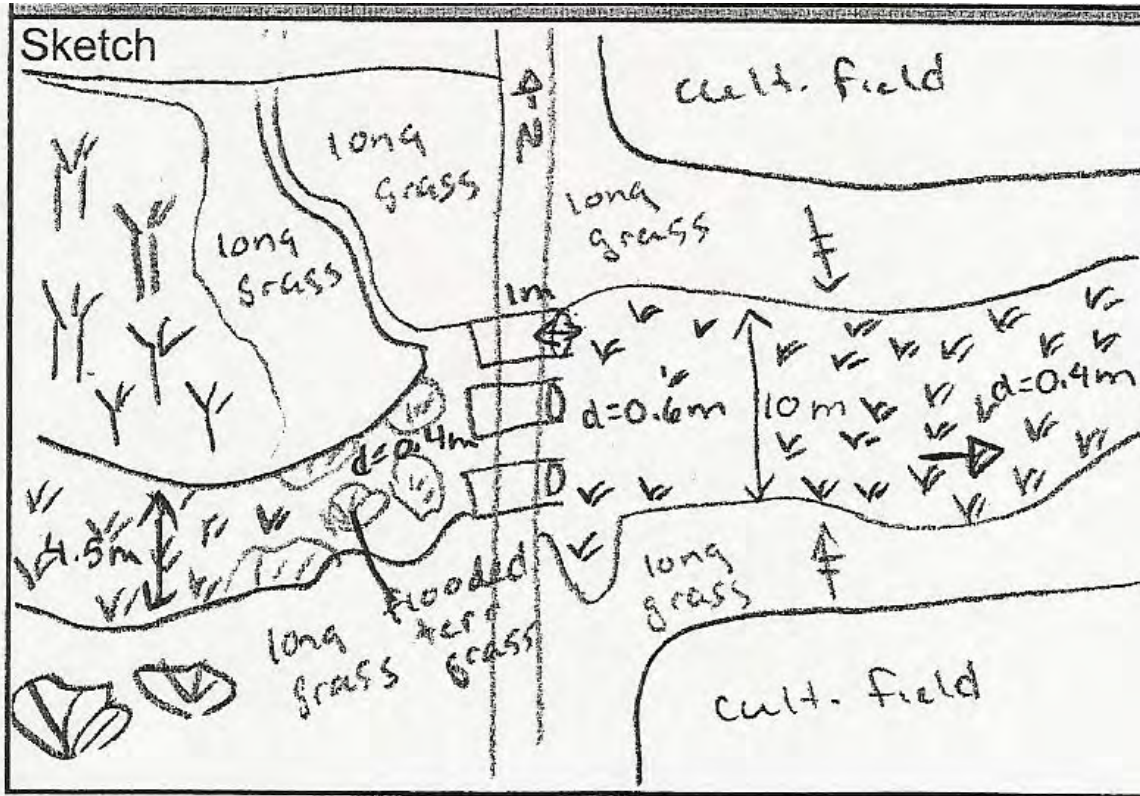 Sketch
cult. field
N
long
grass
long
grass
long
grass
1m
d=0.6m
10m
d=0.4m
d=0.4m
4.5m
flooded
terr
grass
long
grass
long
grass
cult. field